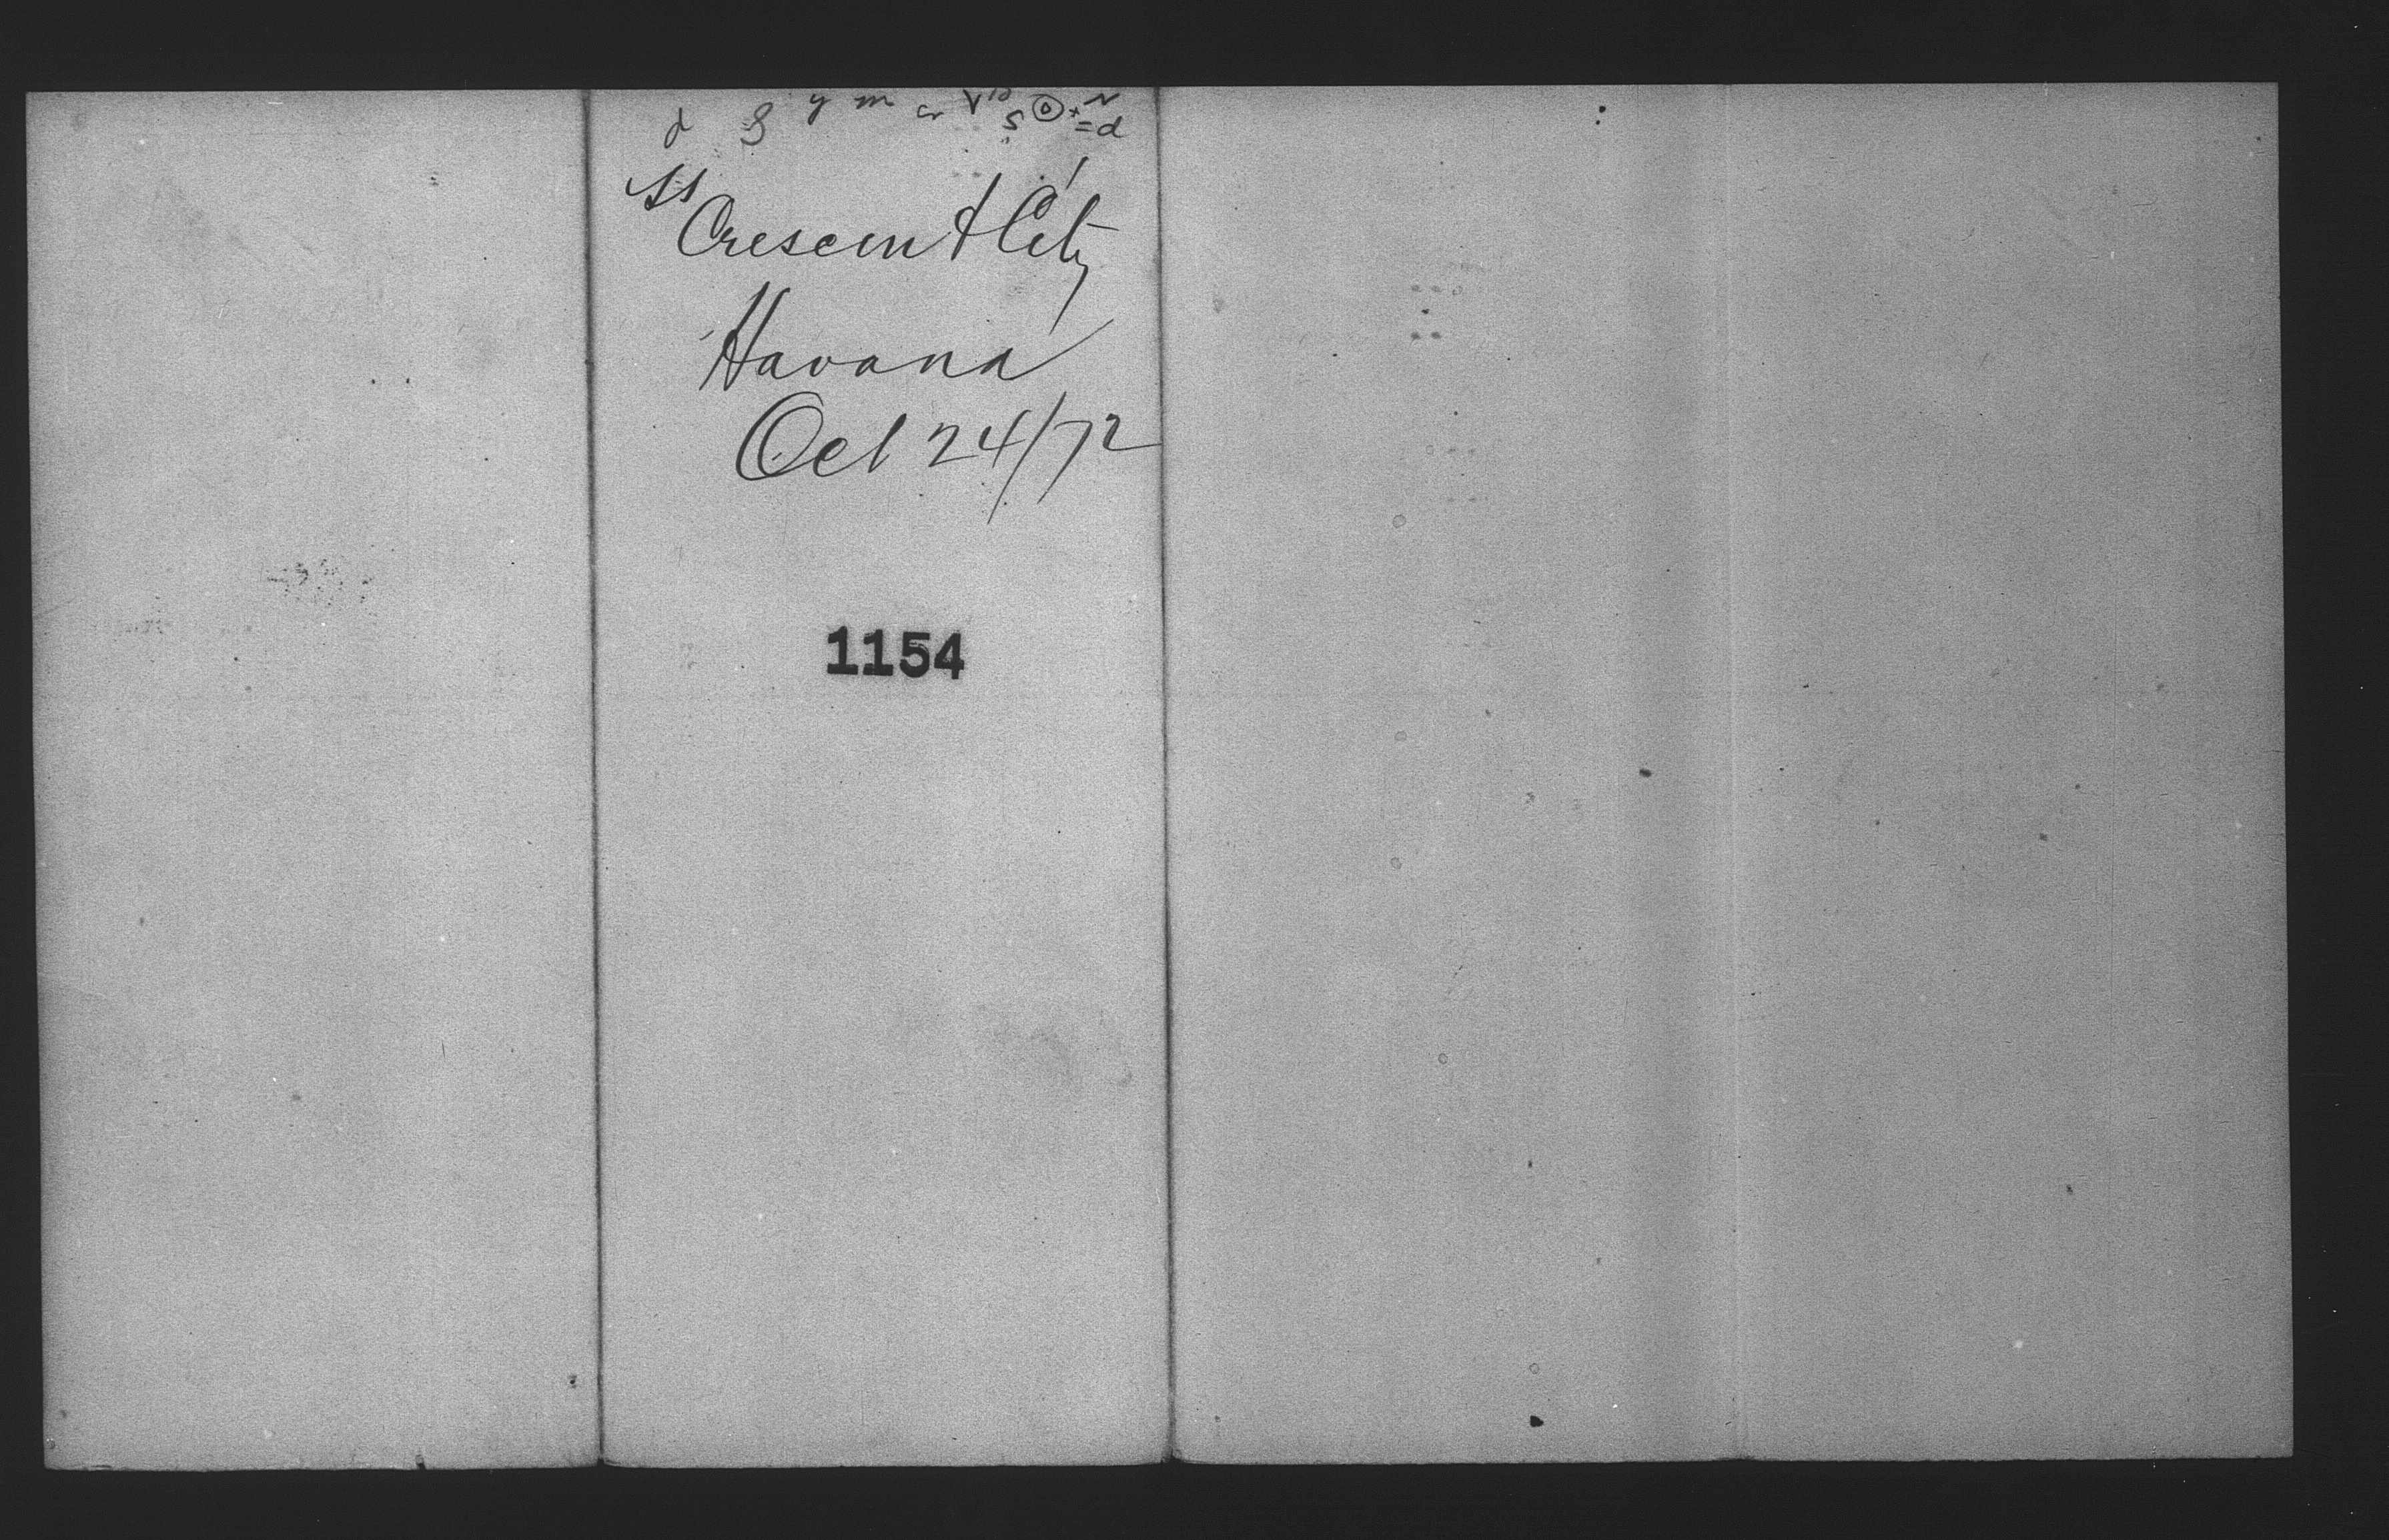 SS
Crescent City
Havana
Oct 24/72
1154